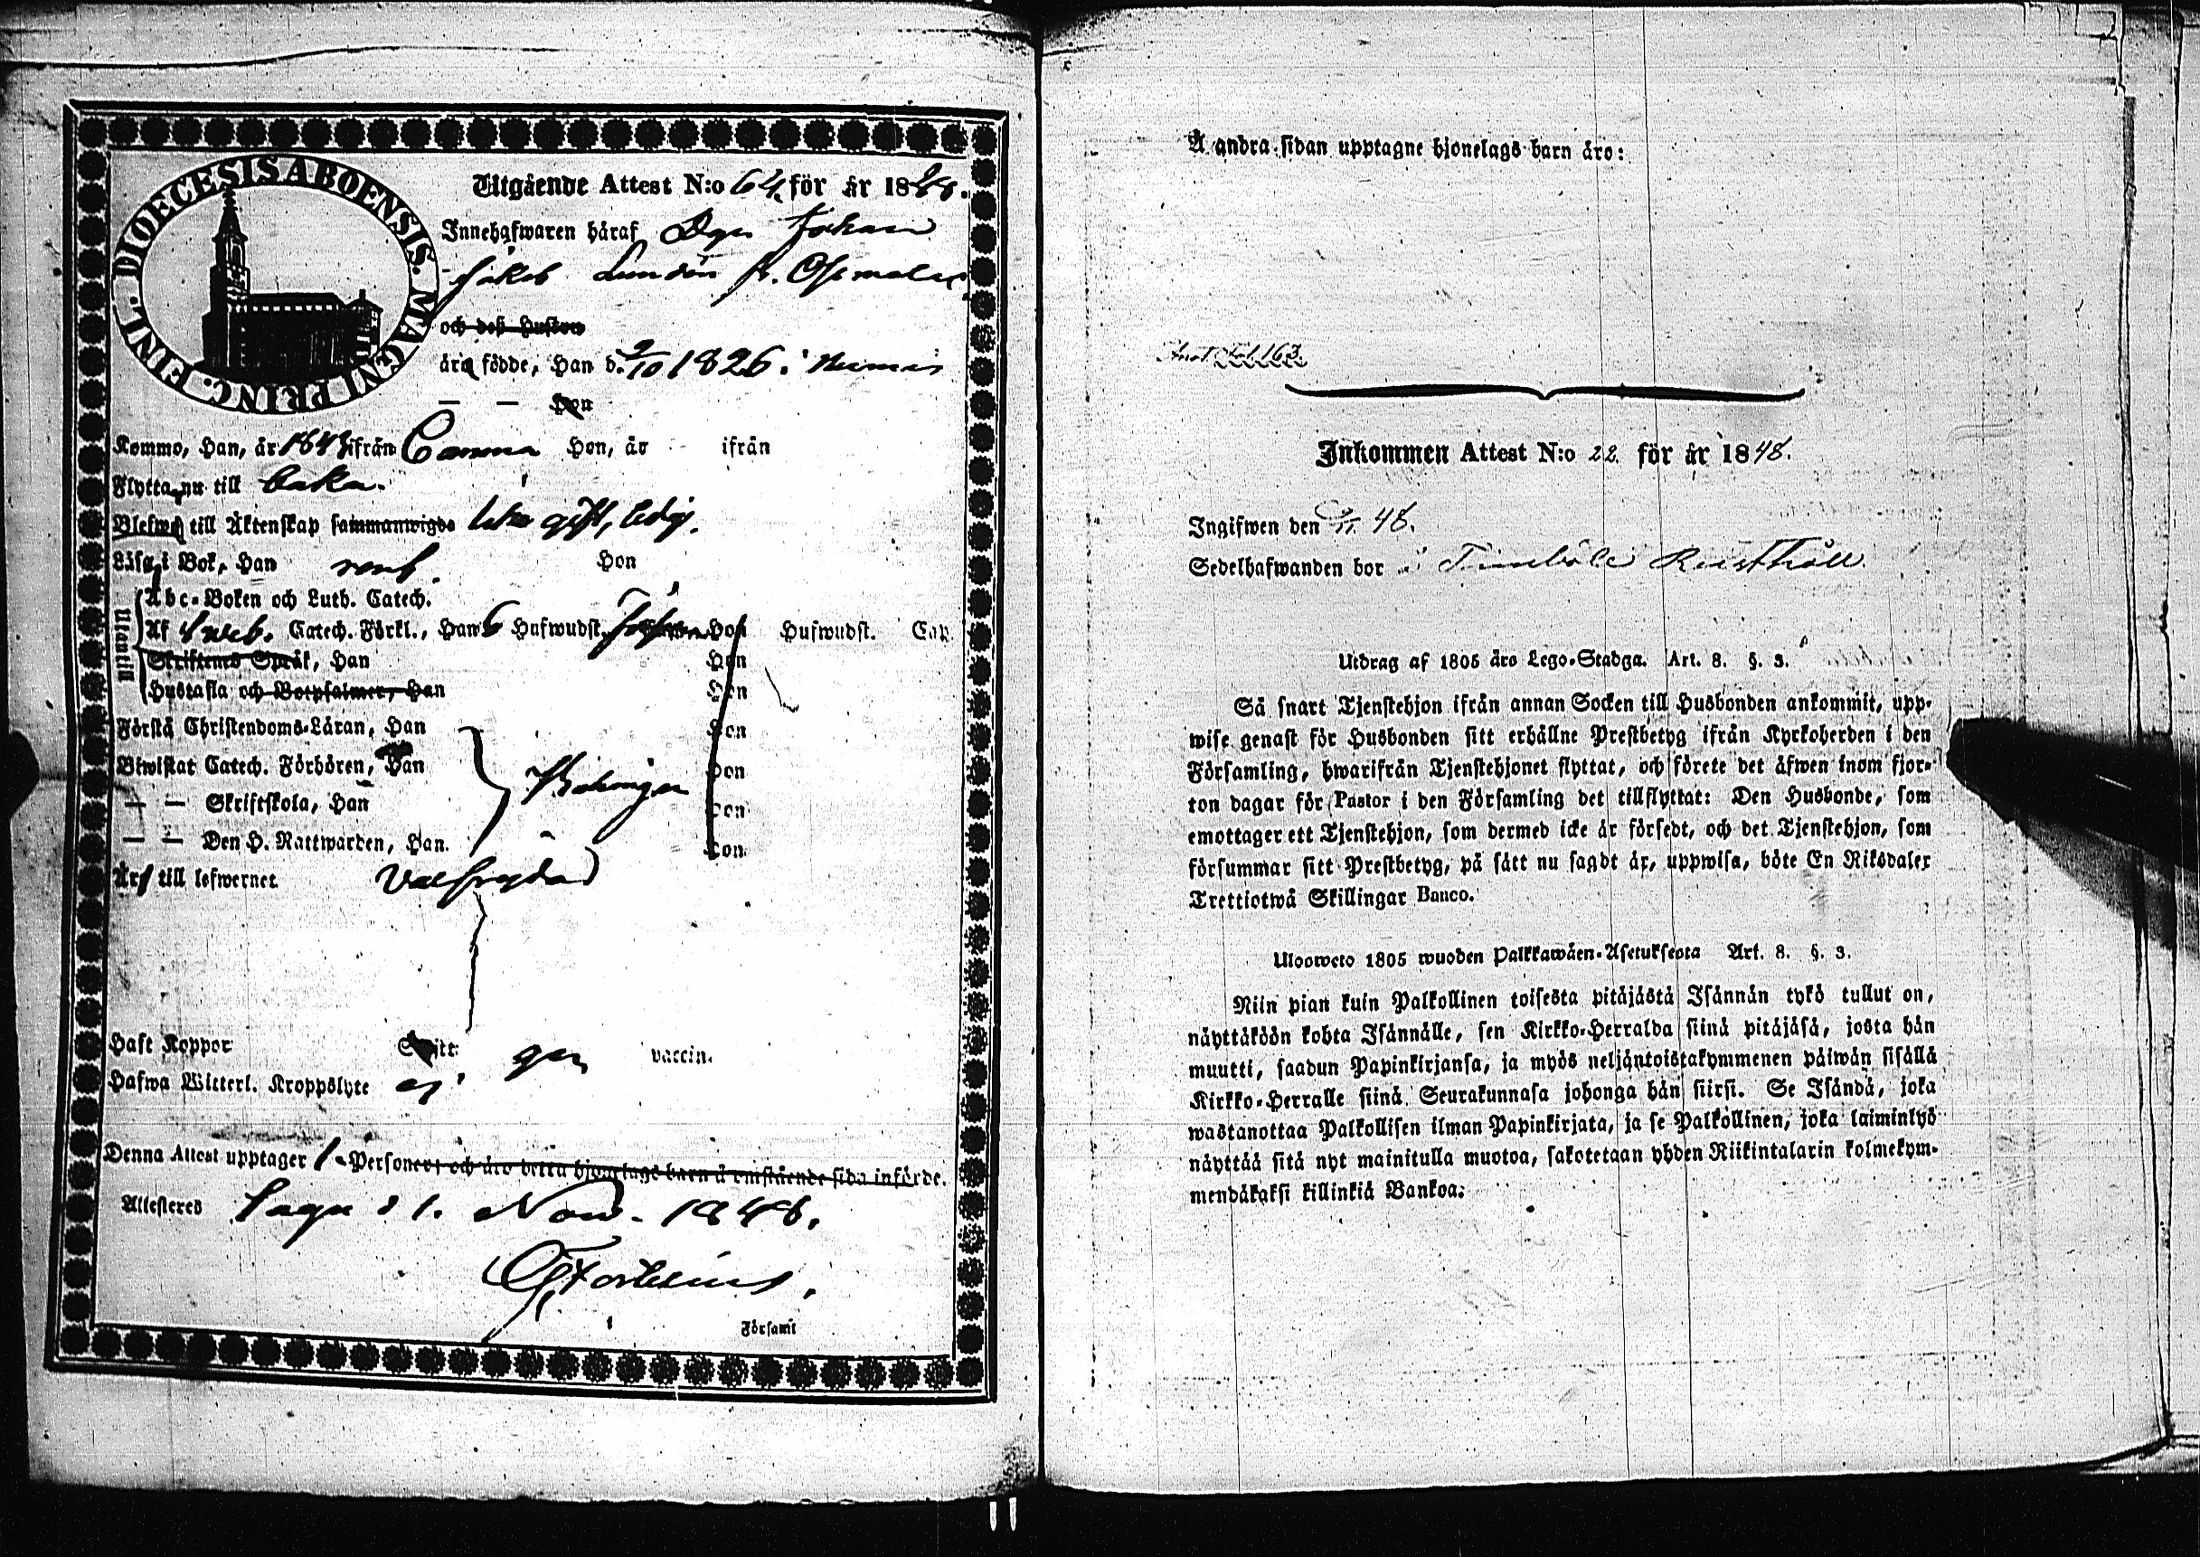 FINL. DIOECESIS ABOENSIS. MAGNI PRINC.
Utgående Attest N:o 64 för år 1848.
Innehafwaren häraf Dgn Johan
Jakob Lundén fr.
och deß Hustru
äro födde, Han d. 9/10 1826. i
— — Hon
Kommo, Han, år 1843 ifrån Hon, år ifrån
Flytta nu till
Blefwo till Äktenskap sammanwigde icke gift, ledig.
Läsa i Bok, Han Hon
Utantill
Abc-Boken och Luth. Catech.
Af Sweb. Catech. Förkl., Han 6 Hufwudst. Hon Hufwudst. Cap.
Skriftenes Språk, Han Hon
Hustafla och Botpsalmer, Han Hon
Förstå Christendoms-Läran, Han Hon
Biwistat Catech. Förhören, Han Hon
— — Skriftskola, Han Hon
— — Den H. Nattwarden, Han. Hon.
Äro till lefwernet Välfrejdad
Haft Koppor vaccin.
Hafwa Witterl. Kroppslyte ej.
Denna Attest upptager 1 Personer och äro detta hjonelags barn å omstående sida införde.
Attesteras Sagu d 1. Nov. 1848.
Förſaml
Å andra sidan upptagne hjonelags barn äro:
fol 163.
Inkommen Attest N:o 22. för år 1848.
Ingifwen den 48.
Sedelhafwanden bor i Rusthåll.
Utdrag af 1805 års Lego-Stadga. Art. 8. §. 3.
Så snart Tjenstehjon ifrån annan Socken till Husbonden ankommit, upp-
wise genast för Husbonden sitt erhållne Prestbetyg ifrån Kyrkoherden i den
Församling, hwarifrån Tjenstehjonet flyttat, och förete det äfwen inom fjor-
ton dagar för Pastor i den Församling det tillflyttat: Den Husbonde, som
emottager ett Tjenstehjon, som dermed icke är försedt, och det Tjenstehjon, som
försummar sitt Prestbetyg, på sätt nu sagdt är, uppwisa, böte En Riksdaler
Trettiotwå Skillingar Banco.
Ulosweto 1805 wuoden Palkkawäen-Asetuksesta Art. 8. §. 3.
Niin pian kuin Palkollinen toisesta pitäjästä Isännän tykö tullut on,
näyttäköön kohta Isännälle, sen Kirkko-Herralda siinä pitäjäsä, josta hän
muutti, saadun Papinkirjansa, ja myös neljäntoistakymmenen päiwän sisällä
Kirkko-Herralle siinä Seurakunnasa johonga hän siirsi. Se Isändä, joka
wastanottaa Palkollisen ilman Papinkirjata, ja se Palkollinen, joka laiminlyö
näyttää sitä nyt mainitulla muotoa, sakotetaan yhden Riikintalarin kolmekym-
mendäkaksi killinkiä Bankoa.